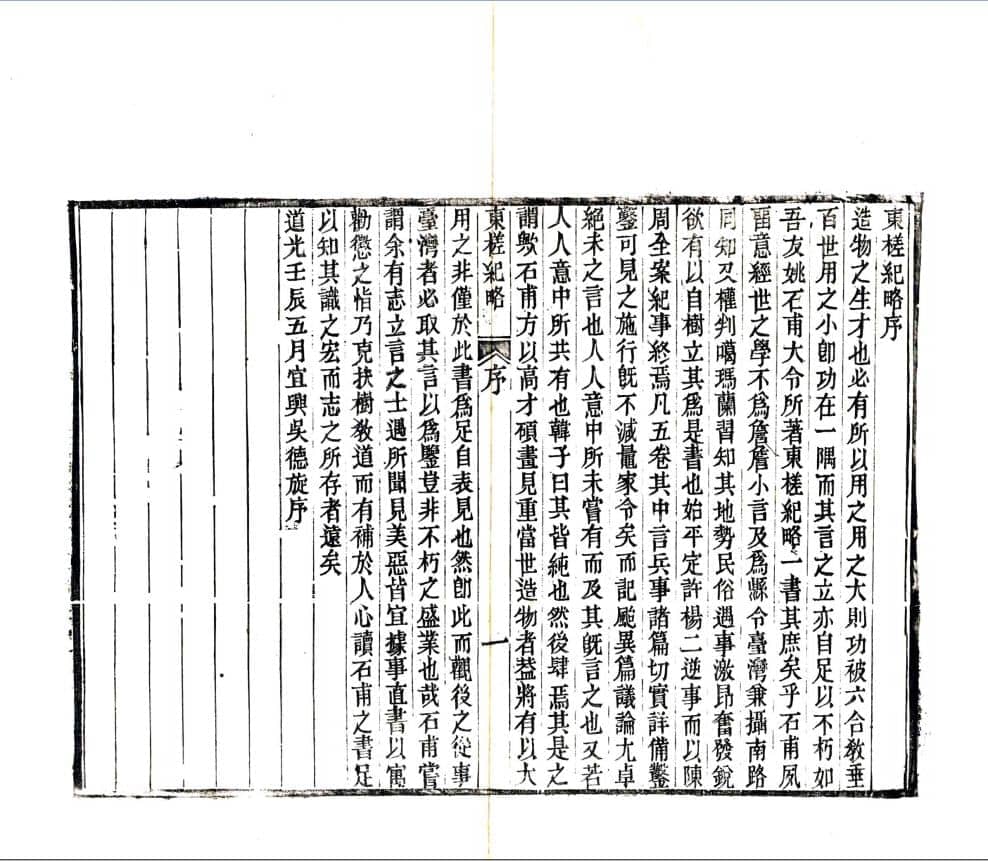 東槎紀略序
造物之生才也必有所以用之用之大則功被六合敎垂
百世用之小卽功在一隅而其言之立亦自足以不朽如
吾友姚石甫大令所著東槎紀略一書其庶矣乎石甫夙
畱意經世之學不爲詹詹小言及爲縣令臺灣兼攝南路
同知又權判噶瑪蘭習知其地勢民俗遇事激昂奮發銳
欲有以自樹立其爲是書也始平定許楊二逆事而以陳
周全案紀事終焉凡五卷其中言兵事諸篇切實詳備鑿
鑿可見之施行旣不減量家令矣而記颱異篇議論尤卓
絕未之言也人人意中所未嘗有而及其旣言之也又若
人人意中所共有也韓子曰其皆純也然後肆焉其是之
謂歟石甫方以高才碩畫見重當世造物者葢將有以大
東槎紀略
序
一
用之非僅於此書爲足自表見也然卽此而觀後之從事
臺灣者必取其言以爲鑒豈非不朽之盛業也哉石甫嘗
謂余有志立言之士遇所聞見美惡皆宜據事直書以寓
勸懲之恉乃克扶樹敎道而有補於人心讀石甫之書足
以知其識之宏而志之所存者遠矣
道光壬辰五月宜興吳德旋序